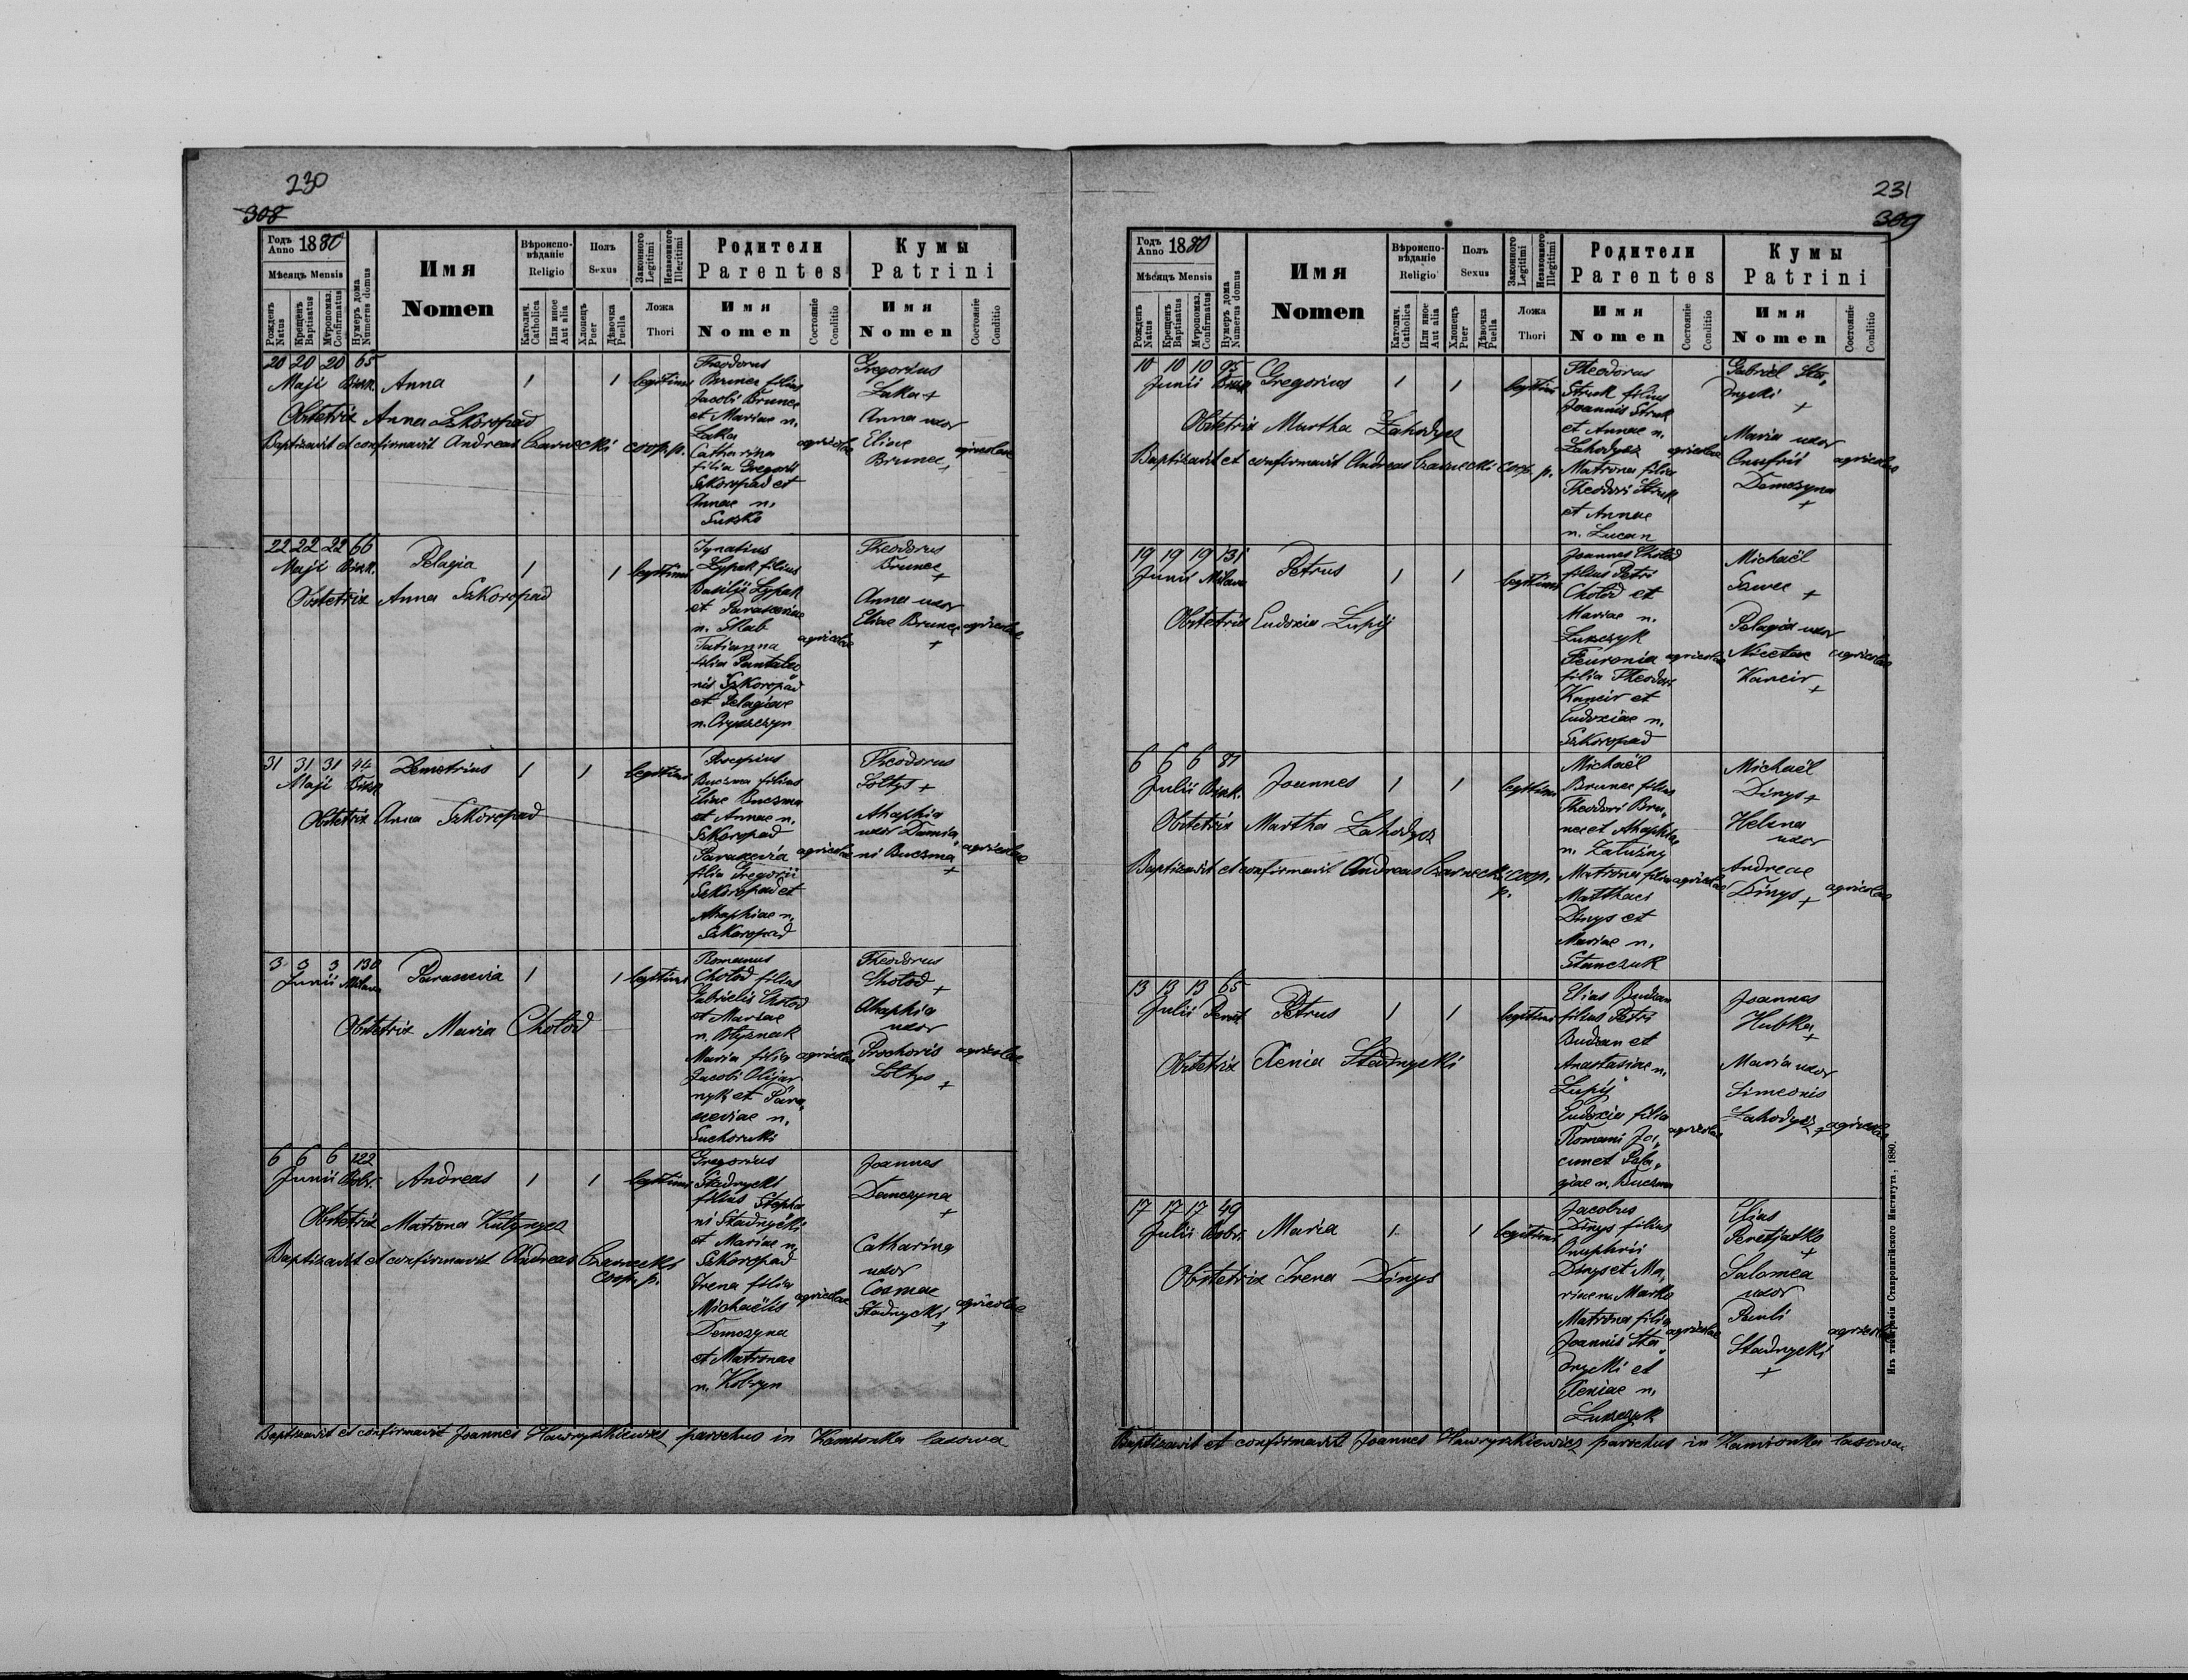 230
308
Годъ Anno 1880
Мѣсяцъ Mensis
Рожденъ Natus
Крещенъ Baptisatus
Мѵропомаз. Confirmatus
Нумеръ дома Numerus domus
Имя
Nomen
Вѣроиспо-
вѣданіе
Religio
Католич. Catholica
Или иное Aut alia
Полъ
Sexus
Хлопецъ Puer
Дѣвочка Puella
Законного Legitimi
Незаконного Illegitimi
Ложа
Thori
Родители
Parentes
Имя
Nomen
Состояніе Conditio
Кумы
Patrini
Имя
Nomen
Состояніе Conditio
20 20 20 65
Maji Bisk. Anna 1 1 legitimi
Obstetrix Anna Szkoropad
Baptisavit et confirmavit Andreas Czarnecki coop. p.
Theodorus
Brunec filius
Jacobi Brunec
et Mariae n.
Łaka
Catharina
filia Gregorii
Szkoropad et
Annae n.
agricolae
Gregorius
Łaka +
Anna uxor
Eliae
Brunec +
agricolae
22 22 22 66
Maji Bisk. Pelagia 1 1 legitimi
Obstetrix Anna Szkoropad
Ignatius
Łypak filius
Basilii Łypak
et Parasceviae
n. Skab
Tatianna
filia Pantaleo
nis Szkoropad
et Pelagiae
n. Oryszczyn
agricolae
Theodorus
Brunec +
Anna uxor
Eliae Brunec
+
agricolae
31 31 31 44
Maji Bisk. Demetrius 1 1 legitimi
Obstetrix Anna Szkoropad
Buczma filius
Eliae Buczma
et Annae n.
Szkoropad
Parascevia
filia Gregorii
Szkoropad et
Ahaphiae n.
Szkoropad
agricolae
Theodorus
Sołtys +
Ahaphia
uxor Damia
ni Buczma
+
agricolae
3 3 3 130
Junii Parascevia 1 1 legitimi
Obstetrix Maria Chołod
Romanus
Chołod filius
Gabrielis Chołod
et Mariae
Maria filia
Jacobi Olijar
nyk et Para,
sceviae n.
Suchorutki
agricolae
Theodorus
Chołod +
Ahaphia
uxor
Prochoris
Sołtys +
agricolae
6 6 6 122
Junii Bobr. Andreas 1 1 legitimi
Obstetrix Matrona Kutynycz
Baptisavit et confirmavit Andreas Czarnecki
coop. p.
Gregorius
Stadnycki
filius Stepha
ni Stadnycki
et Mariae n.
Szkoropad
Irena filia
Michaëlis
Demczyna
et Matronae
n. Kobryn
agricolae
Joannes
Demczyna
+
Catharina
uxor
Cosmae
Stadnycki
+
agricolae
Baptisavit et confirmavit Joannes Hawryszkiewicz parochus in Kamionka lasowa
231
309
Годъ Anno 1880
Мѣсяцъ Mensis
Рожденъ Natus
Крещенъ Baptisatus
Мѵропомаз. Confirmatus
Нумеръ дома Numerus domus
Имя
Nomen
Вѣроиспо-
вѣданіе
Religio
Католич. Catholica
Или иное Aut alia
Полъ
Sexus
Хлопецъ Puer
Дѣвочка Puella
Законного Legitimi
Незаконного Illegitimi
Ложа
Thori
Родители
Parentes
Имя
Nomen
Состояніе Conditio
Кумы
Patrini
Имя
Nomen
Состояніе Conditio
10 10 10 95
Junii Bisk. Gregorius 1 1 legitimi
Obstetrix Martha Zahodycz
Baptisavit et confirmavit Andreas Czarnecki coop. p.
Theodorus
Struk filius
Joannis Struk
et Annae n.
Zahodycz
Matrona filia
Theodori Struk
et Annae
n. Lucan
agricolae
Gabriel Sta,
dnycki
+
Maria uxor
Onufrii
Demczyna
+
agricolae
19 19 19 131
Junii Petrus 1 1 legitimi
Obstetrix Eudoxia Łupij
Joannes Chołod
filius Petri
Chołod et
Mariae n.
Łukczyk
Feuronia
filia Theodori
Kuncir et
Eudoxiae n.
Szkoropad
agricolae
Michaël
Szwec +
Pelagia uxor
Nicetae
Kuncir
+
agricolae
6 6 6 87
Julii Bisk. Joannes 1 1 legitimi
Obstetrix Martha Zahodycz
Baptisavit et confirmavit Andreas Czarnecki coop.
p.
Michaël
Brunec filius
Theodori Bru,
nec et Ahaphiae
n. Załużny
Matrona filia
Matthaei
Dinys et
Mariae n.
Stanczuk
agricolae
Michaël
Dinys +
Helena
uxor
Andreae
Dinys +
agricolae
13 13 13 65
Julii Petrus 1 1 legitimi
Obstetrix Xenia Stadnycki
Elias Budzan
filius Petri
Budzan et
Anastasiae n.
Łupij
Eudoxia filia
Romani Ja,
cun et Pela,
giae n. Buczma
agricolae
Joannes
Hubka
+
Maria uxor
Simeonis
Zahodycz +
agricolae
17 17 17 49
Julii Bobr. Maria 1 1 legitimi
Obstetrix Irena Dinys
Jacobus
Dinys filius
Onuphrii
Dinys et Ma,
riae n. Marko
Matrona filia
Joannis Sta,
dnycki et
Xeniae n.
Łukczyk
agricolae
Elias
Peretjatko
+
Salomea
uxor
Pauli
Stadnycki
+
agricolae
Baptisavit et confirmavit Joannes Hawryszkiewicz parochus in Kamionka lasowa.
Изъ типографіи Ставропигійского Института, 1880.